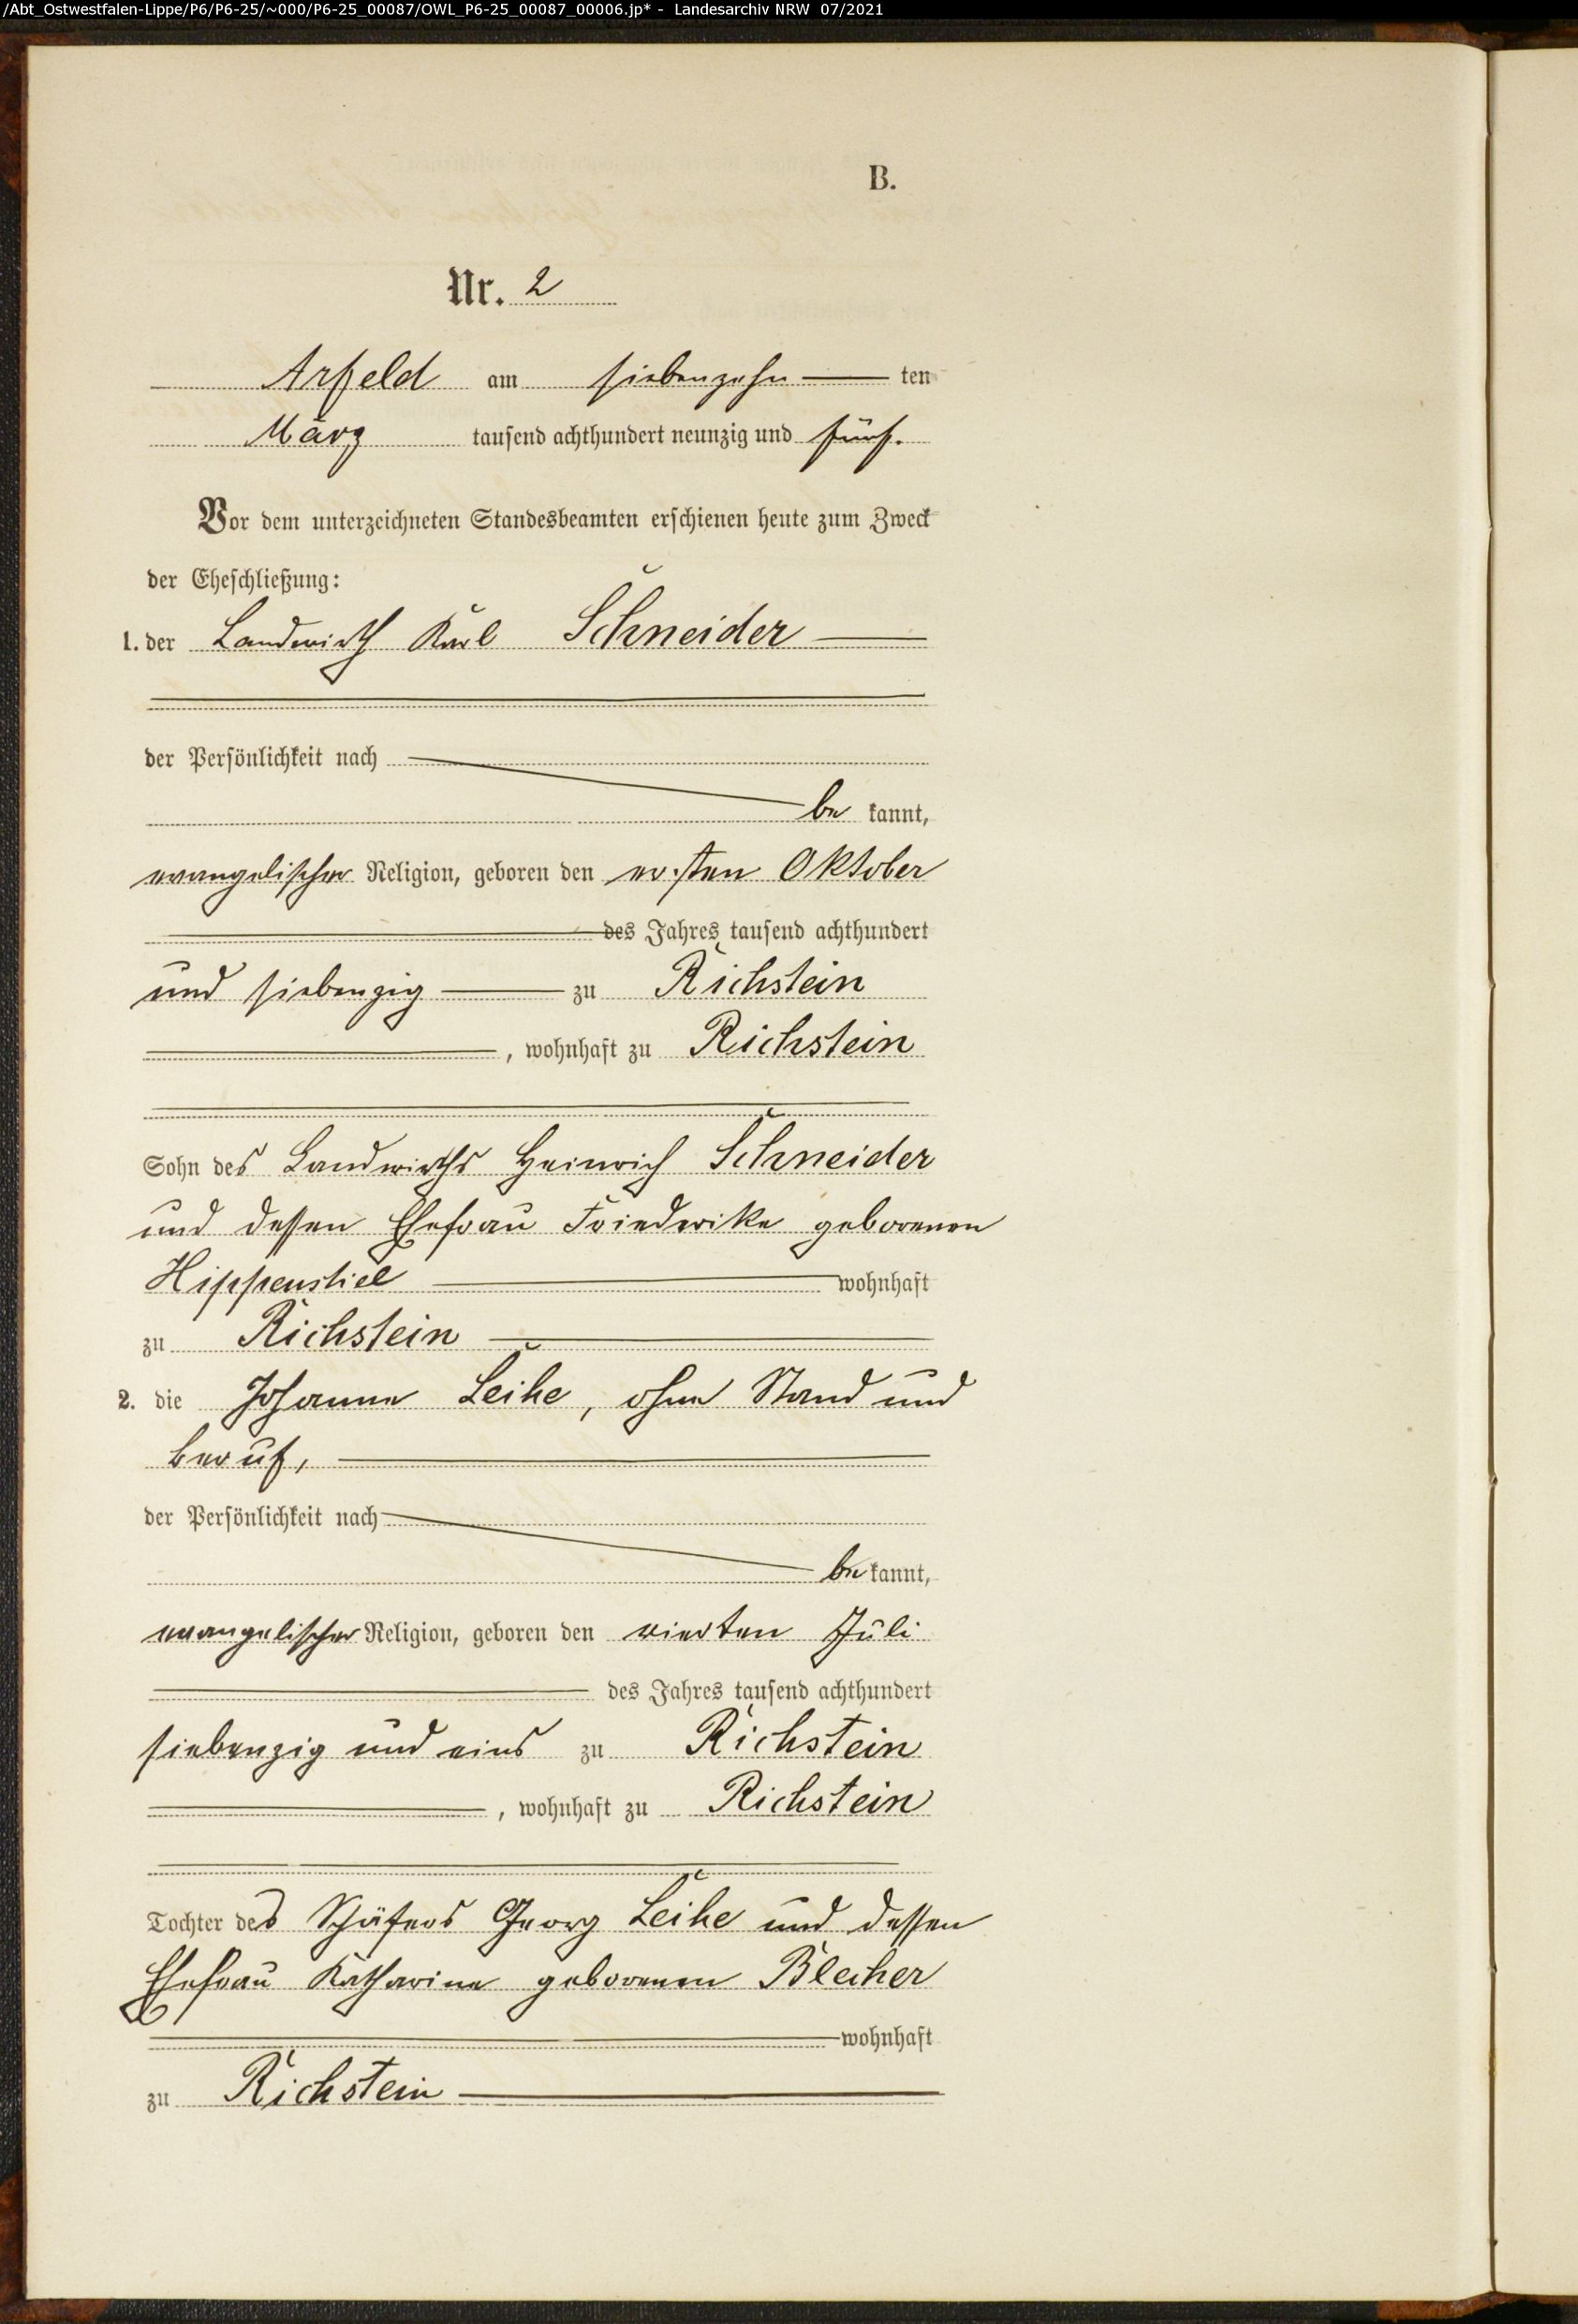 /Abt_Ostwestfalen-Lippe/P6/P6-25/~000/P6-25_00087/OWL_P6-25_00087_00006.jp* - Landesarchiv NRW 07/2021
B.
Nr. 2
Arfeld am siebenzehn ten
März tausend achthundert neunzig und fünf.
Vor dem unterzeichneten Standesbeamten erschienen heute zum Zweck
der Eheschließung:
1. der Landwirth Karl Schneider
der Persönlichkeit nach
be kannt,
evangelischer Religion, geboren den ersten Oktober
des Jahres tausend achthundert
und siebenzig zu Richstein
, wohnhaft zu Richstein
Sohn des Landwirths Heinrich Schneider
und dessen Ehefrau Friederike geborenen
Hippenstiel wohnhaft
zu Richstein
2. die Johanne Leihe, ohne Stand und
Beruf,
der Persönlichkeit nach
be kannt,
evangelischer Religion, geboren den vierten Juli
des Jahres tausend achthundert
siebenzig und eins zu Richstein
, wohnhaft zu Richstein
Tochter des Schäfers Georg Leihe und dessen
Ehefrau Katharine geborenen Blecher
wohnhaft
zu Richstein